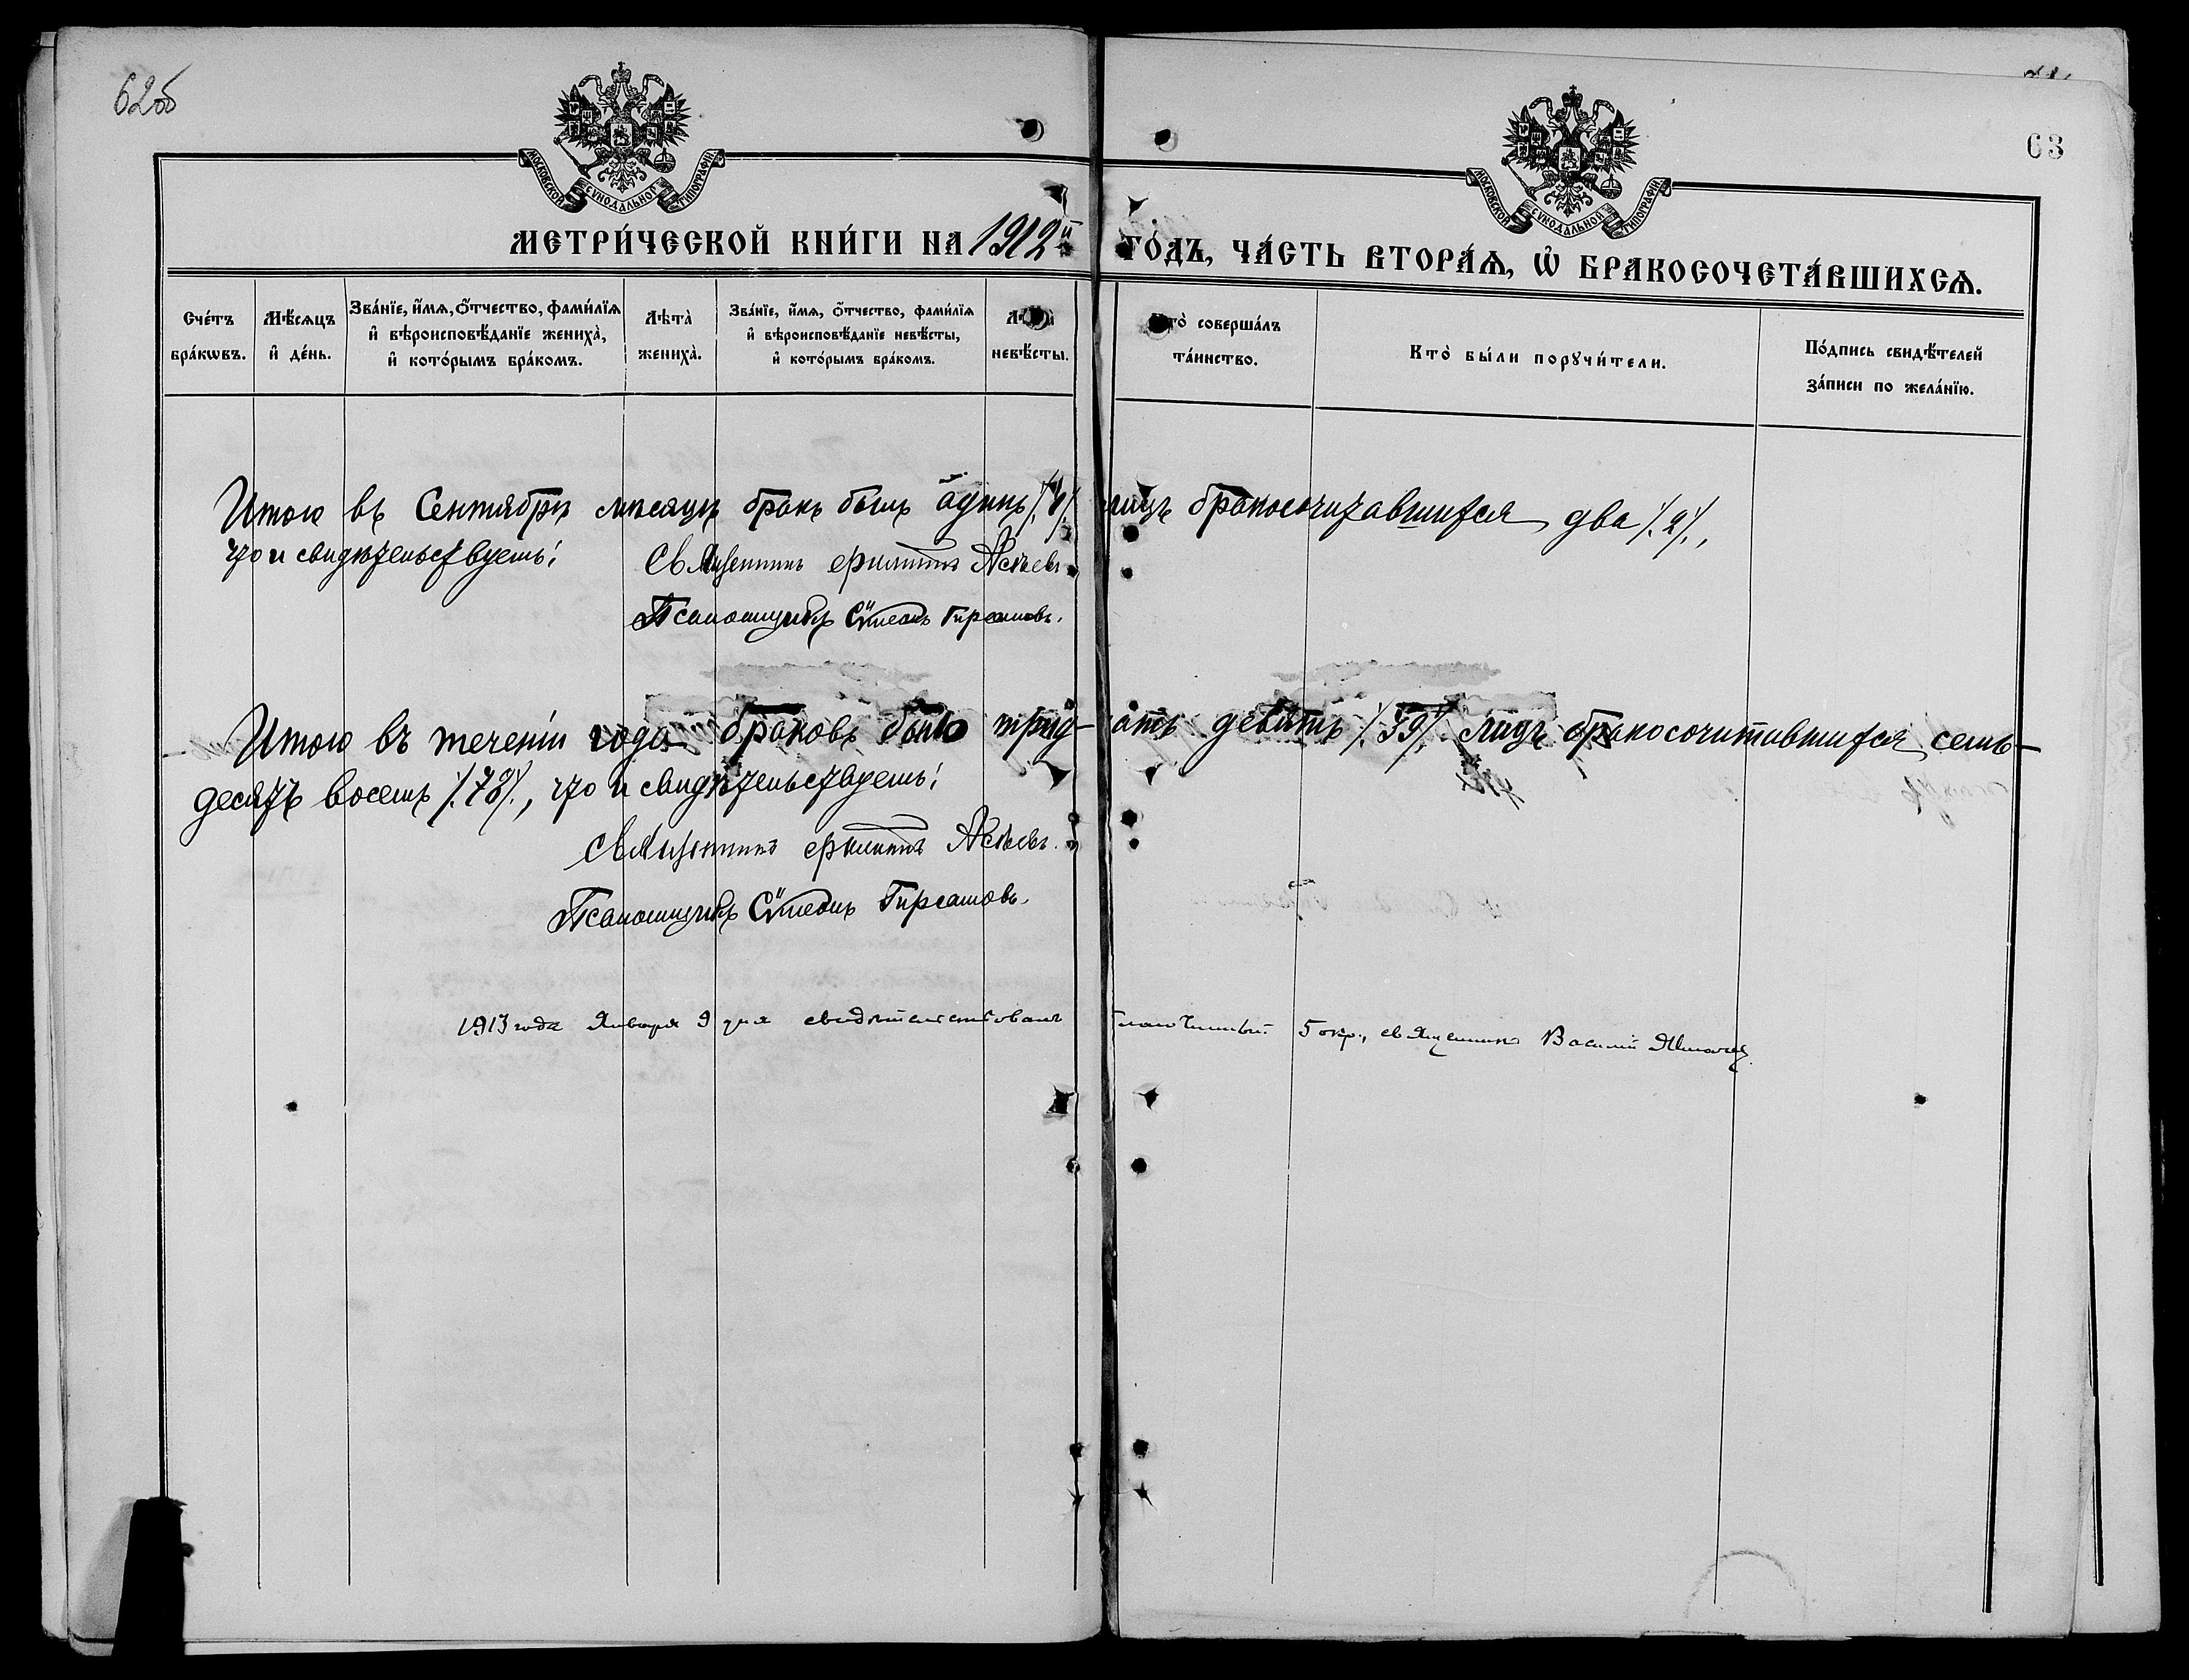 62об
МОСКОВСКОЙ СѴНОДАЛЬНОЙ ТИПОГРАФІИ
МОСКОВСКОЙ СѴНОДАЛЬНОЙ ТИПОГРАФІИ
63
МЕТРИ́ЧЕСКОЙ КНИ́ГИ НА 1912й ГО́ДЪ, ЧА́СТЬ ВТОРА́Ѧ, Ѡ҆ БРАКОСОЧЕТА́ВШИХСѦ.
Сче́тъ бра́кѡвъ.
Мѣ́сѧцъ и҆ де́нь.
Зва́нїе, и҆́мѧ, ѻ҆́тчество, фами́лїѧ и҆ вѣроисповѣ́данїе жениха̀, и҆ кото́рымъ бра́комъ.
Лѣта̀ жениха̀.
Зва́нїе, и҆́мѧ, ѻ҆́тчество, фами́лїѧ и҆ вѣроисповѣ́данїе невѣ́сты, и҆ кото́рымъ бра́комъ.
Лѣта̀ невѣ́сты.
Кто̀ соверша́лъ та́инство.
Кто̀ бы́ли порꙋчи́тели.
По́дпись свидѣ́телей за́писи по жела́нїю.
Итого въ Сентябрѣ мѣсяцѣ бракъ былъ адинъ /.1/. лицъ бракосочитавшихся два /.2/.,
что и свидѣтельствуемъ:
Священникъ Филиппъ
Псаломщикъ Сѵмеонъ Гирсамовъ.
Итого въ теченіи года браковъ было трид-цать девять /.39/. лицъ бракосочитавшихся семь-
десятъ восемь /.78/., что и свидѣтельствуемъ:
Священникъ Филиппъ
Псаломщикъ Сѵмеонъ Гирсамовъ.
1913 года Января 9 дня свидѣтельствовалъ благочинный 5 окр., священникъ Василій